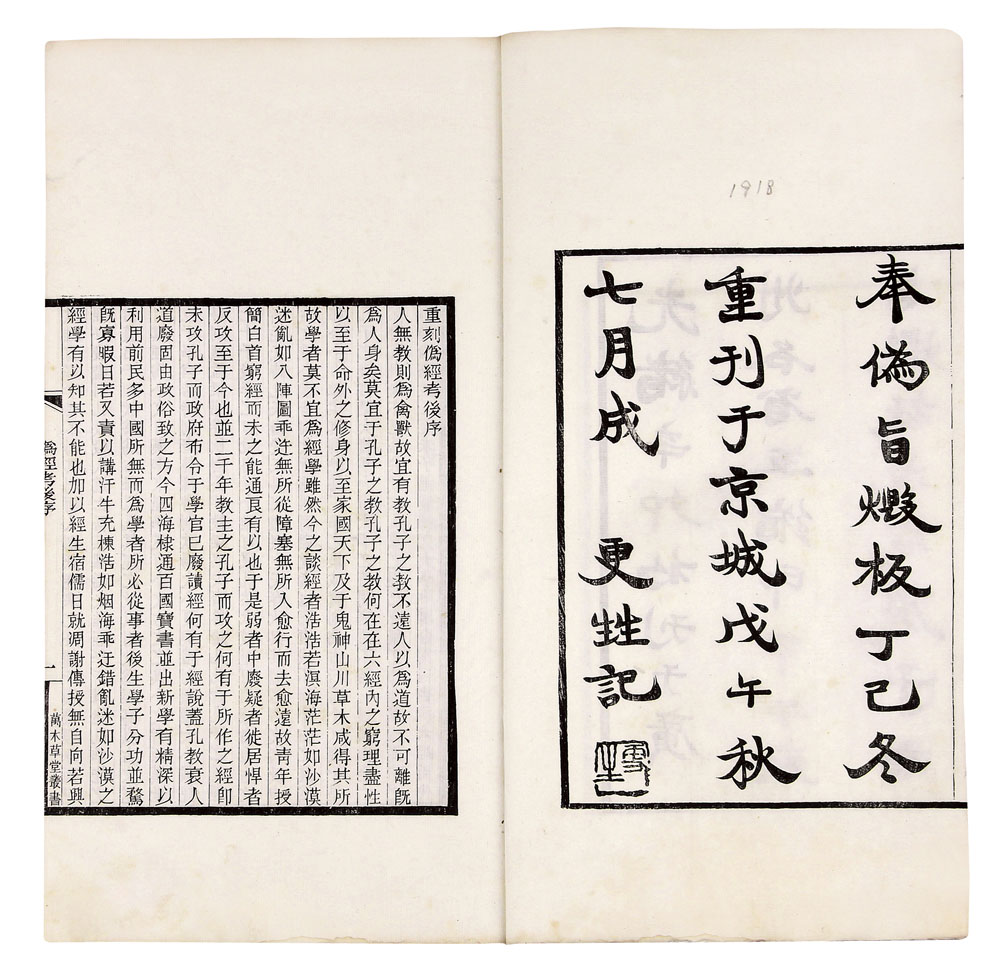 1918
奉偽旨燬板丁巳冬
重刊于京城戊午秋
七月成 更甡記
重刻僞經考後序
人無教則爲禽獸故宜有教孔子之教不遠人以爲道故不可離旣
爲人身矣莫宜于孔子之教孔子之教何在在六經內之窮理盡性
以至于命外之修身以至家國天下及于鬼神山川草木咸得其所
故學者莫不宜爲經學雖然今之談經者浩浩若溟海茫茫如沙漠
迷亂如八陣圖乖迕無所從障塞無所入愈行而去愈遠故靑年授
簡白首窮經而未之能通良有以也于是弱者中廢疑者徙居悍者
反攻至于今也並二千年教主之孔子而攻之何有于所作之經卽
未攻孔子而政府布令于學官已廢讀經何有于經說蓋孔教衰人
道廢固由政俗致之方今四海棣通百國寶書並出新學有精深以
利用前民多中國所無而爲學者所必從事者後生學子分功並騖
旣寡暇日若又責以講汗牛充棟浩如烟海乖迕錯亂迷如沙漠之
經學有以知其不能也加以經生宿儒日就凋謝傳授無自向若興
僞經考後序
一
萬木草堂叢書